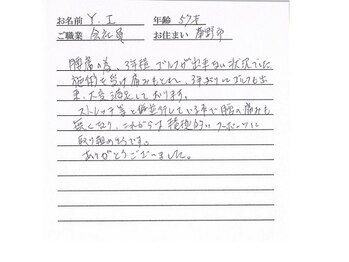 お名前 Y.I 年齢 57才
ご職業 会社員 お住まい 秦野市
腰痛の為、3年程ゴルフが出来ない状況でした
施術を受け痛みもとれ、3年ぶりにゴルフも出
来、大変満足しております。
ストレッチ等も並行している事で腰の痛みも
無くなり、これからは積極的にスポーツに
取り組めそうです。
ありがとうございました。